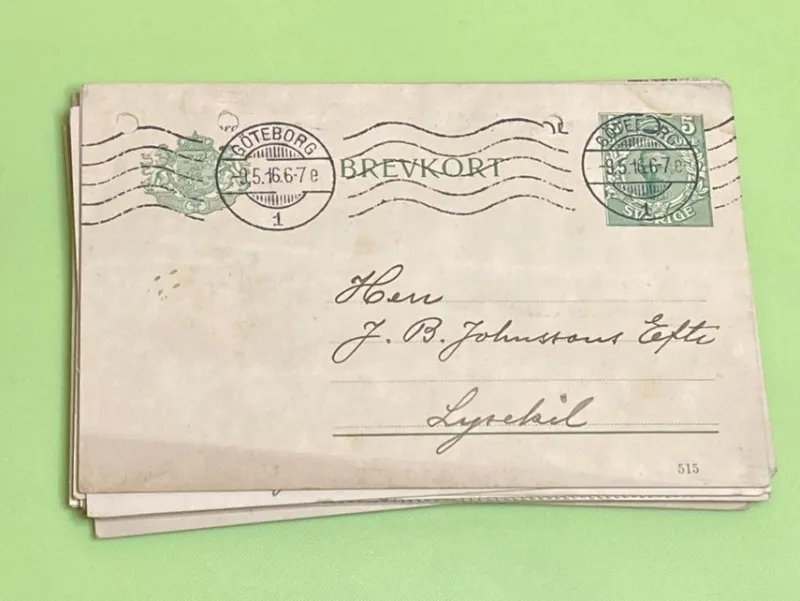 GÖTEBORG
9.5.16.6-7 e
1
BREVKORT
GÖTEBORG
9.5.16.6-7 e
1
5
SVERIGE
Herr
J. B. Johnssons Eftr
Lysekil
515